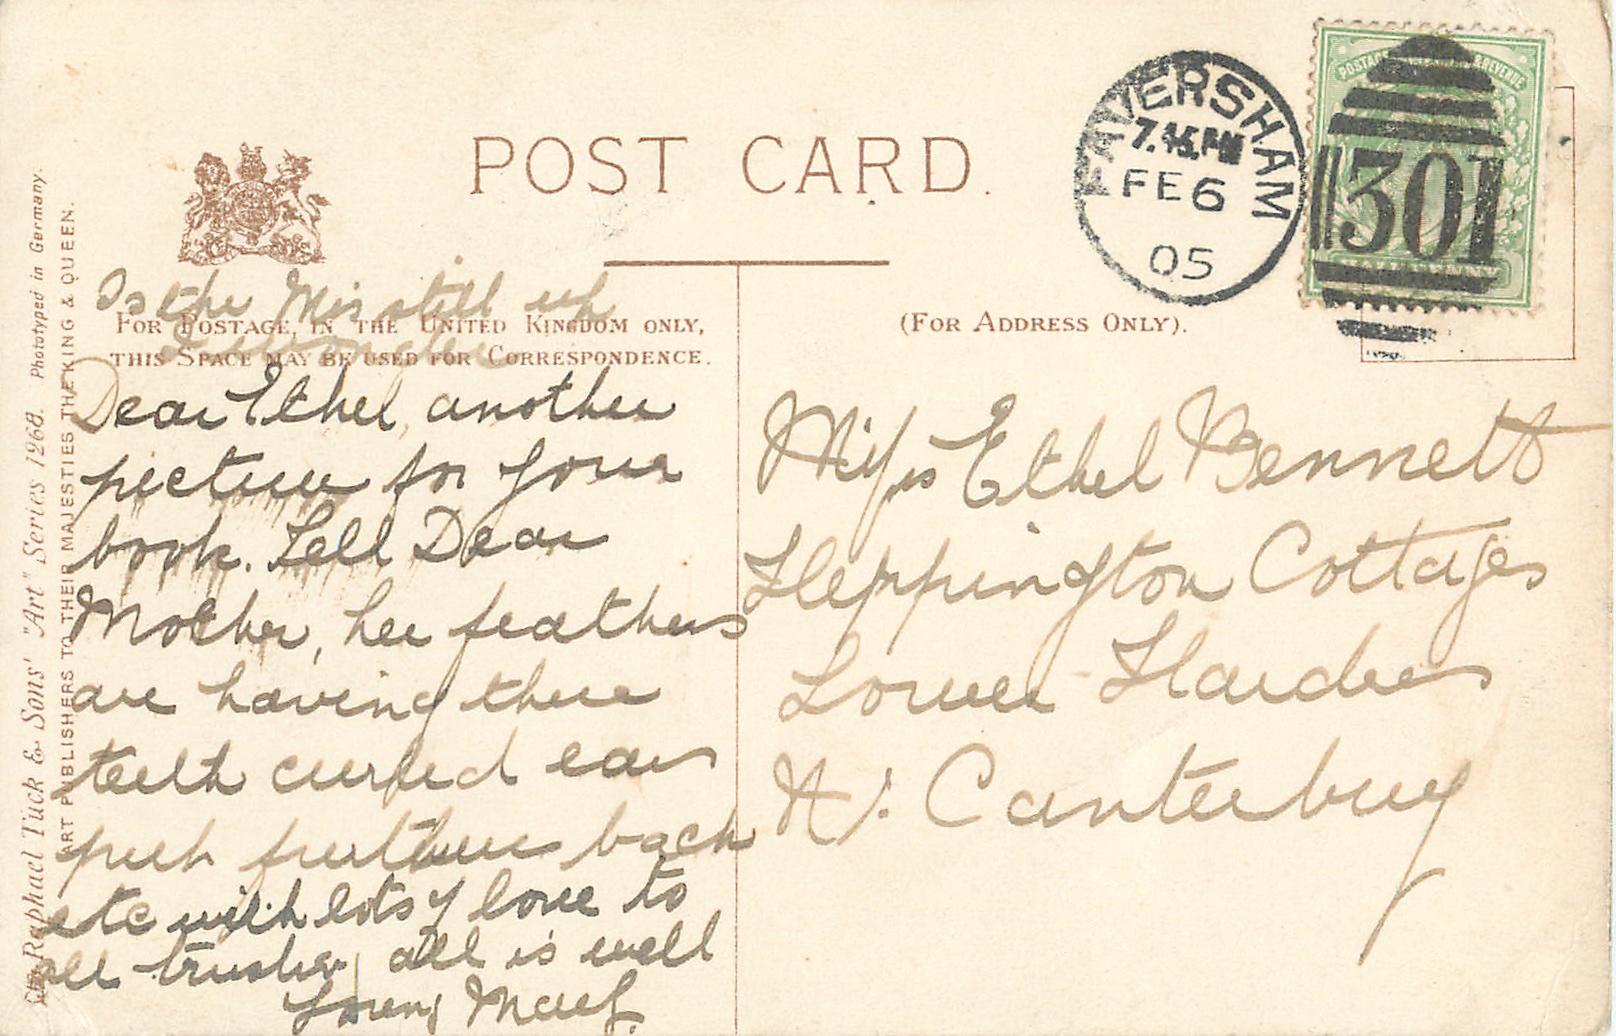 POST CARD.
FAVERSHAM
7.45 PM
FE 6
05
POSTAGE & REVENUE
301
Is the Mis still up
I wonder
FOR POSTAGE, IN THE UNITED KINGDOM ONLY,
THIS SPACE MAY BE USED FOR CORRESPONDENCE.
(FOR ADDRESS ONLY).
Dear Ethel, another
picture for your
book. Tell Dear
Mother, her feathers
are having there
teeth curled ears
put further back
etc with lots of love to
all trusting all is well
Loving
Miss Ethel Bennett
Heppington Cottages
Lower Hardres
Nr. Canterbury
Raphael Tuck & Sons' "Art" Series 1268. Phototyped in Germany.
ART PUBLISHERS TO THEIR MAJESTIES THE KING & QUEEN.